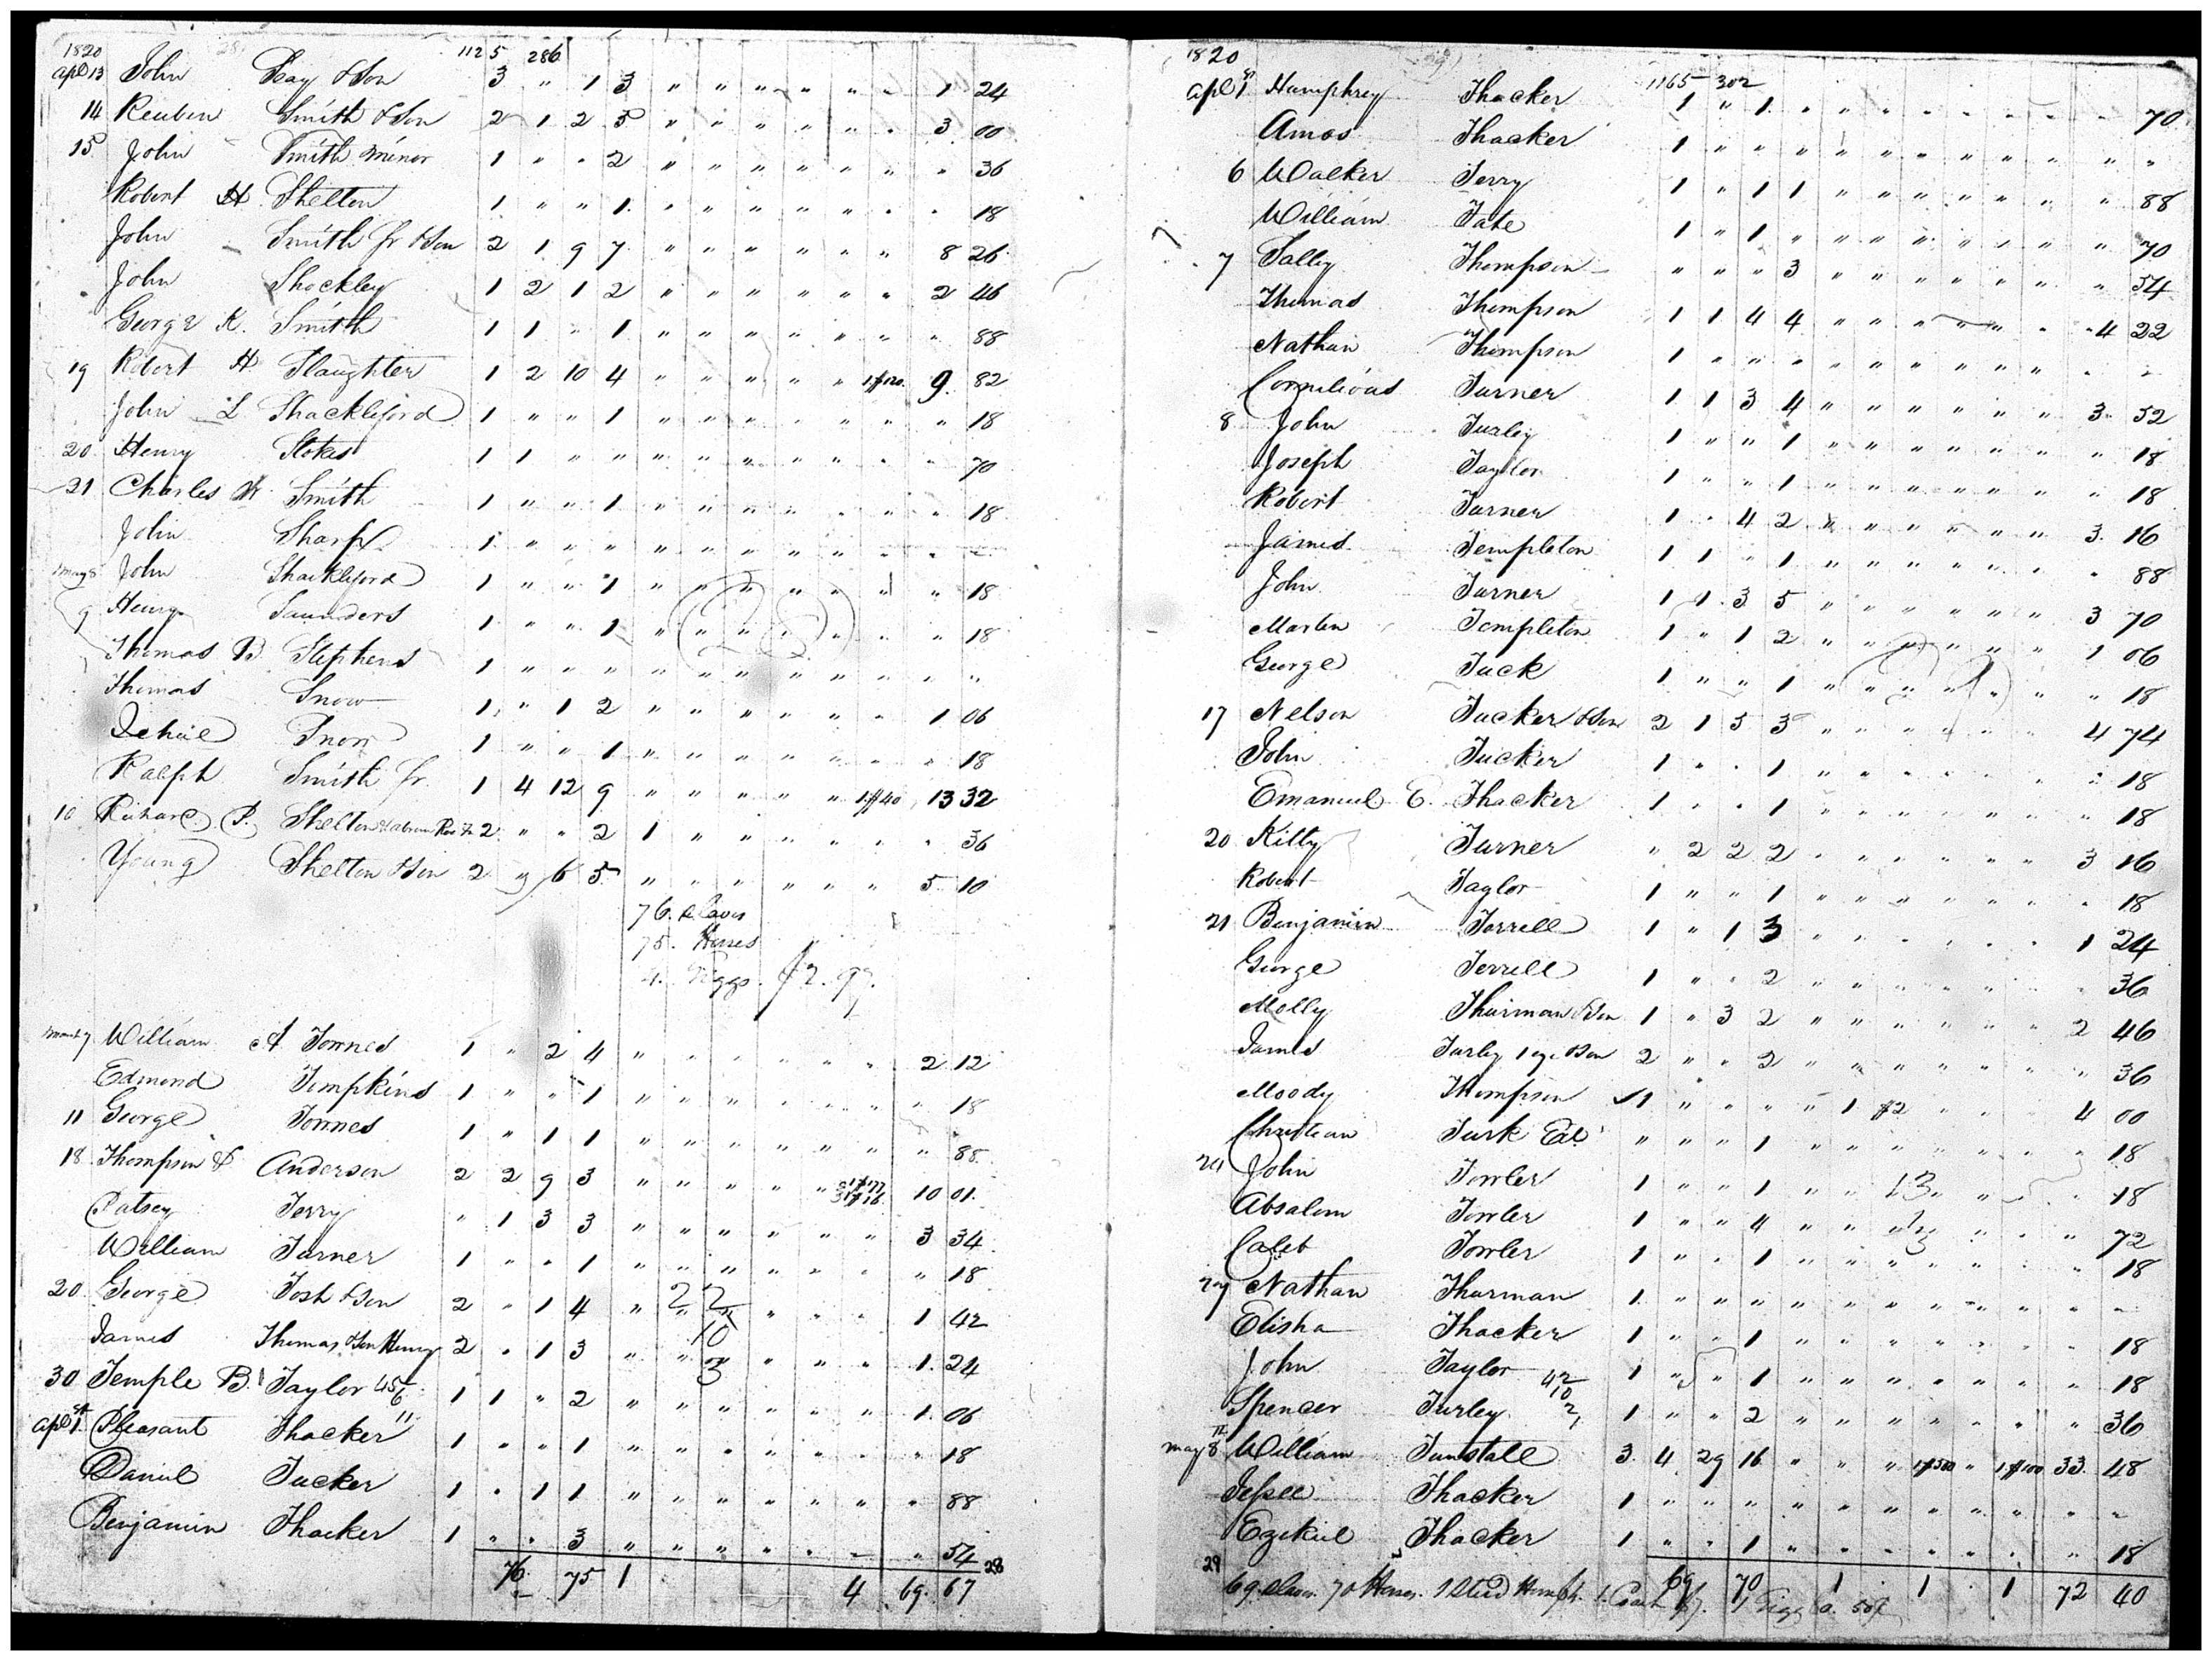 1820
1125 286
Apl 13 John Ray & Son 3 " 1 3 " " " " " " 1 24
14 Reuben Smith & Son 2 1 2 5 " " " " " " 3 00
15 John Smith minor 1 " " 2 " " " " " " " 36
Robert H Shelton 1 " " 1 " " " " " " " 18
John Smith Jr & Son 2 1 9 7 " " " " " " 8 26
John Shockley 1 2 1 2 " " " " " " 2 46
George K. Smith 1 1 " 1 " " " " " " " 88
19 Robert H Slaughter 1 2 10 4 " " " " " 1 $120 9. 82
John L Shackleford 1 " " 1 " " " " " " " 18
20 Henry Stokes 1 1 " " " " " " " " " 70
21 Charles W Smith 1 " " 1 " " " " " " " 18
John Sharp 1 " " " " " " " " " " "
May 8 John Shackleford 1 " " 1 " " " " " " " 18
9 Henry Saunders 1 " " 1 " " " " " " " 18
Thomas B Stephens 1 " " " " " " " " " " "
Thomas Snow 1 " 1 2 " " " " " " 1 06
Snow 1 " " 1 " " " " " " " 18
Ralph Smith Jr. 1 4 12 9 " " " " " 1 $40 13 32
10 Richard P. Shelton 2 " " 2 1 " " " " " " 36
Young Shelton & Son 2 " 6 5 " " " " " " 5 10
76. Slaves
75. Horses
4. Giggs. $2.97.
March 7 William A Townes 1 " 2 4 " " " " " " 2 12
Edmond Tompkins 1 " " 1 " " " " " " " 18
11 George Townes 1 " 1 1 " " " " " " " 88
18 Thompson & Anderson 2 2 9 3 " " " " " 10 01
Patsey Terry " 1 3 3 " " " " " " 3 34
William Turner 1 " " 1 " " " " " " " 18
20 George Tosh & Son 2 " 1 4 " " " " " " 1 42
James Thomas & Son Henry 2 " 1 3 " " " " " " 1. 24
30 Temple B. Taylor 1 1 " 2 " " " " " " 1. 06
Apl 1st Pleasant Thacker 1 " " 1 " " " " " " " 18
Daniel Tucker 1 " 1 1 " " " " " " " 88
Benjamin Thacker 1 " " 3 " " " " " " " 54
76. 75 1 4 69. 67 28
1820
1165 302
Apl 1st Humphrey Thacker 1 " 1 " " " " " " " " 70
Amos Thacker 1 " " " " " " " " " " "
6 Walker Terry 1 " 1 1 " " " " " " " 88
William Tate 1 " 1 " " " " " " " " 70
7 Salley Thompson " " " 3 " " " " " " " 54
Thomas Thompson 1 1 4 4 " " " " " " 4 22
Nathan Thompson 1 " " " " " " " " " " "
Cornelious Turner 1 1 3 4 " " " " " " 3 52
8 John Turley 1 " " 1 " " " " " " " 18
Joseph Taylor 1 " " 1 " " " " " " " 18
Robert Turner 1 " 4 2 " " " " " " 3. 16
James Templeton 1 1 " 1 " " " " " " " 88
John Turner 1 1 3 5 " " " " " " 3 70
Marten Templeton 1 " 1 2 " " " " " " 1 06
George Tuck 1 " " 1 " " " " " " " 18
17 Nelson Tucker & Son 2 1 5 3 " " " " " " 4 74
John Tucker 1 " " 1 " " " " " " " 18
Emanuel E. Thacker 1 " " 1 " " " " " " " 18
20 Kitty Turner " 2 2 2 " " " " " " 3 16
Robert Taylor 1 " " 1 " " " " " " " 18
21 Benjamin Terrell 1 " 1 3 " " " " " " 1 24
George Terrell 1 " " 2 " " " " " " " 36
Molly Thurman & Son 1 " 3 2 " " " " " " 2 46
James Turley & Son 2 " " 2 " " " " " " " 36
Moody Thompson 1 " " " " 1 $2 " " " 4 00
Christian Turk Est. " " " 1 " " " " " " " 18
24 John Towler 1 " " 1 " " " " " " " 18
Absalom Towler 1 " " 4 " " " " " " " 72
Caleb Towler 1 " " 1 " " " " " " " 18
27 Nathan Thurman 1 " " " " " " " " " " "
Elisha Thacker 1 " " 1 " " " " " " " 18
John Taylor 1 " " 1 " " " " " " " 18
Spencer Turley 1 " " 2 " " " " " " " 36
May 8th William Tunstall 3. 4 29 16 " " " 1 $500 " 1 $100 33. 48
Jesse Thacker 1 " " " " " " " " " " "
Ezekiel Thacker 1 " " 1 " " " " " " " 18
29 69 70 1 1 1 72 40
69 Slaves. 70 Horses. 1 Stud Horse